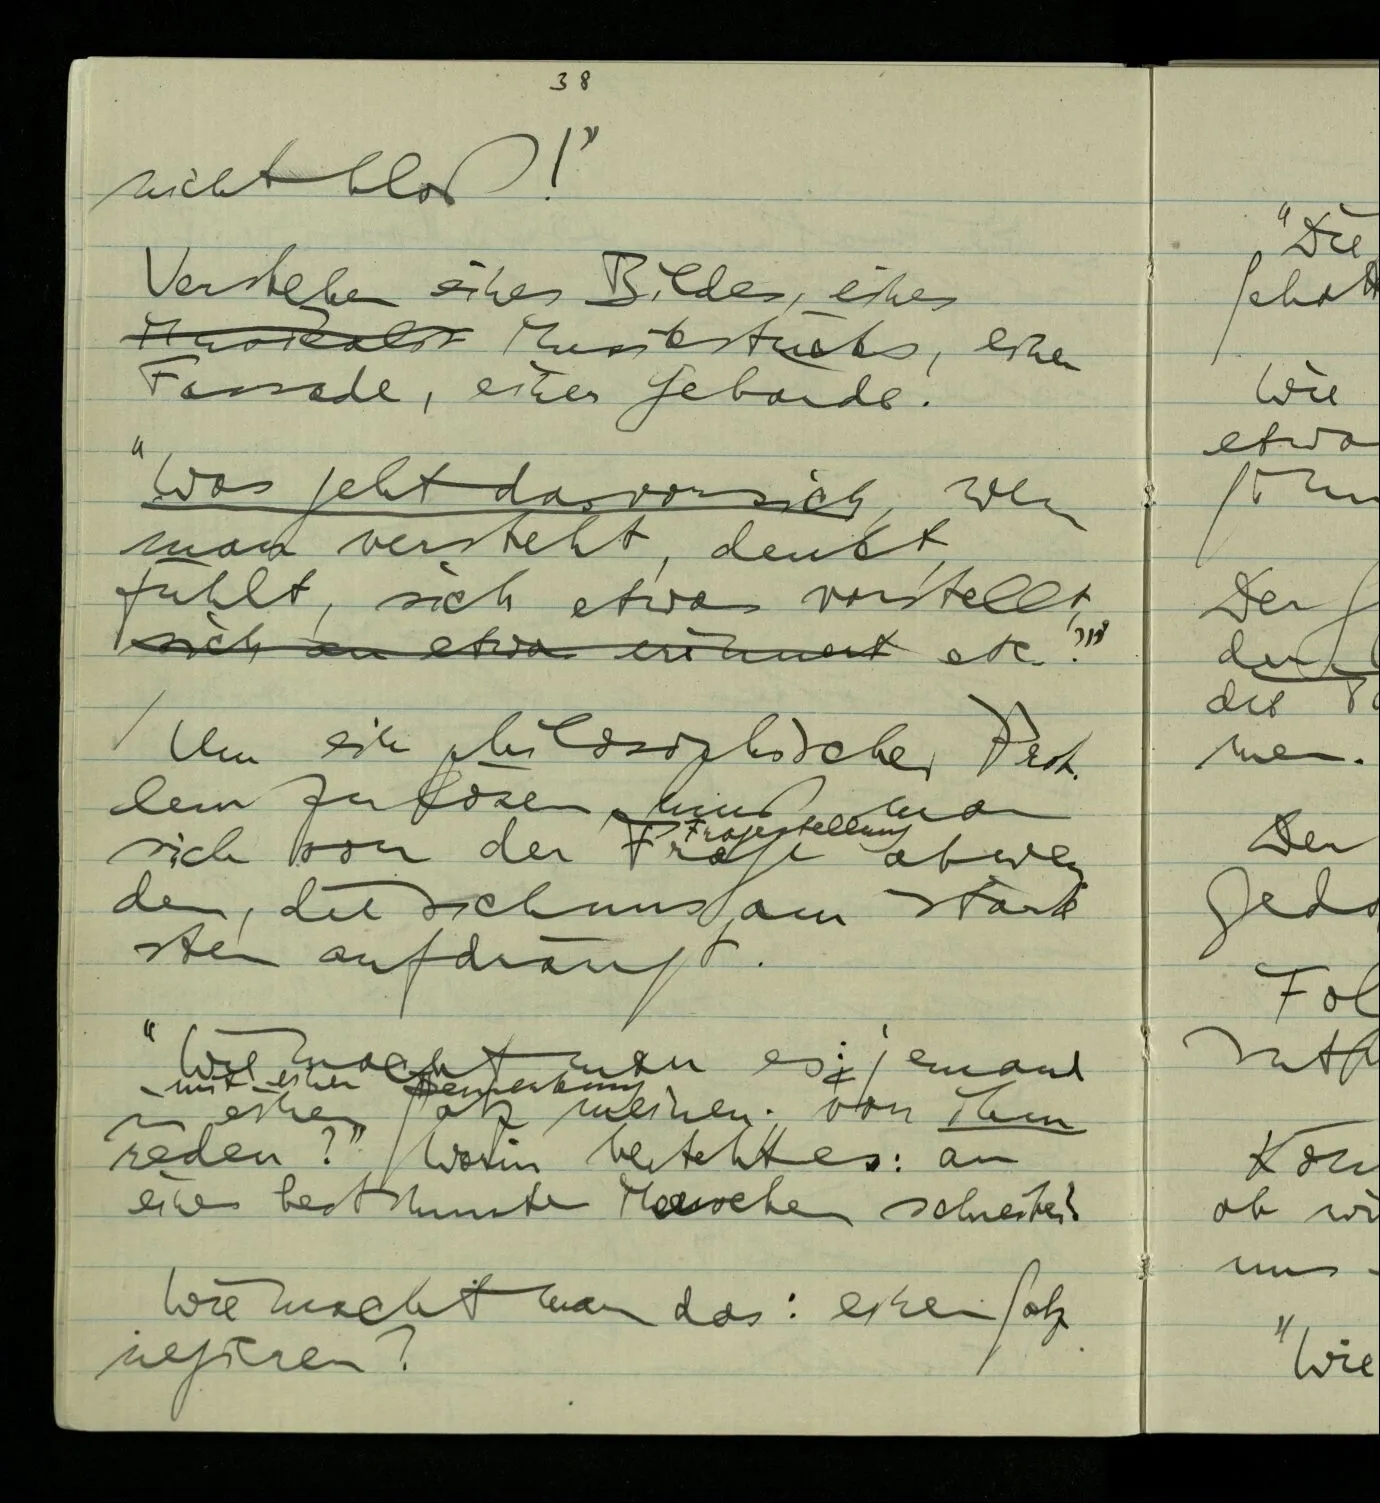 38
nicht bloß!”
Verstehen eines Bildes, eines
Musikalis Musikstücks, einer
Fassade, einer Gebärde.
“Was geht da vor sich, wenn
man versteht, denkt,
fühlt, sich etwas vorstellt,
sich an etwas erinnert etc.?”
/ Um ein philosophisches Prob-
lem zu lösen muß man
Fragestellung
sich von der Frage abwen
den, die sich uns am stärk
sten aufdrängt.
“Wie macht man es: jemand
mit einer Bemerkung
in einem Satz meinen; von ihm
reden?” Worin besteht es: an
einen bestimmten Menschen schreiben?
Wie macht man das: einen Satz
negieren?
“Die
Wie
etwa
Der
die
men.
Der
Fol
ob wi
uns
“Wie